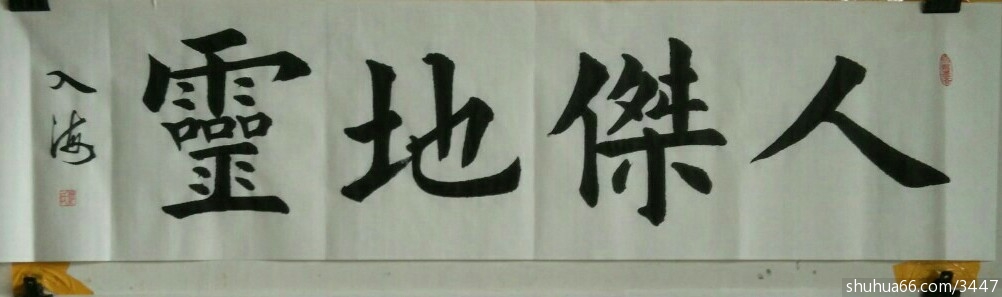 人傑地靈
入海
shuhua66.com/3447